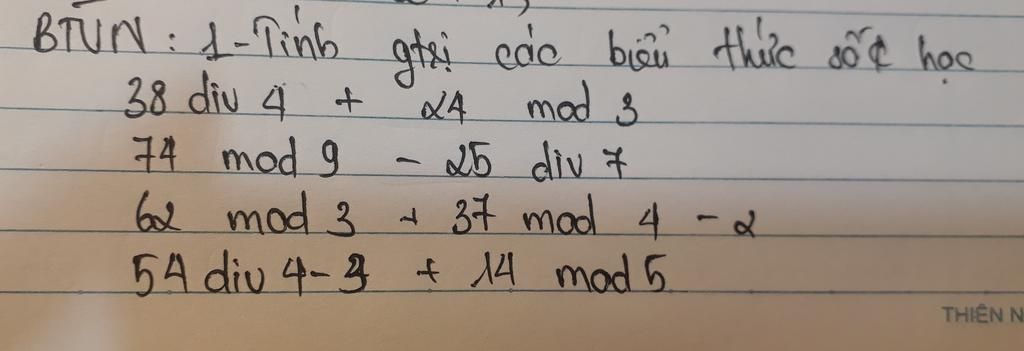 BTVN: 1-Tính gtrị các biểu thức số học
38 div 4 + 24 mod 3
74 mod 9 - 25 div 7
62 mod 3 + 37 mod 4 - 2
54 div 4 - + 14 mod 5
THIÊN N